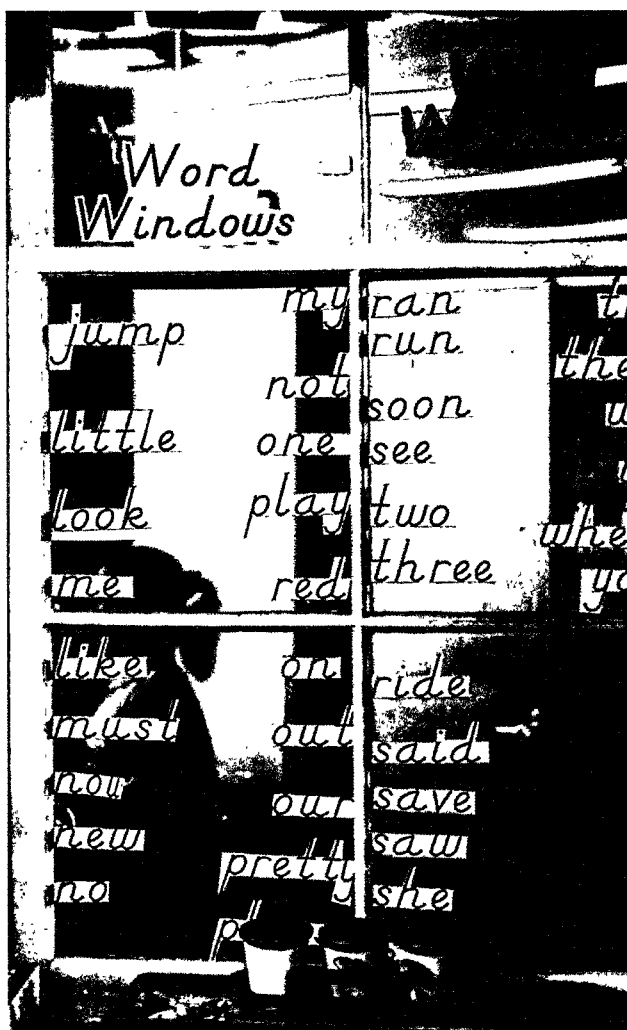 Word
Windows
jump
little
look
me
my
not
one
play
red
ran
run
soon
see
two
three
like
must
now
new
no
on
out
our
pretty
ride
said
save
saw
she